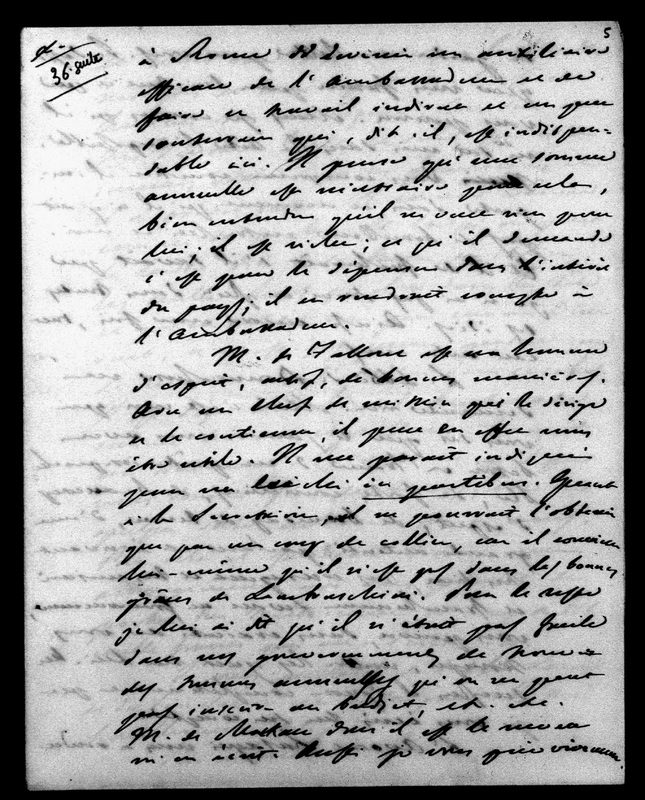 5
36. suite
à Rome et devenir un auxiliaire
efficace de l'Ambassadeur et de
faire ce travail indirect et un peu
souterrain qui, dit-il, est indispen-
sable ici. Il pense qu'une somme
annuelle est nécessaire pour cela,
bien entendu qu'il ne veut rien pour
lui; il est riche; ce qu'il demande
c'est pour le dépenser dans l'intérêt
du pays; il en rendrait compte à
l'Ambassadeur.
M. de Falloux est un homme
d'esprit, actif, de bonnes manières.
Avec un chef de mission qui le dirige
et le contienne, il peut en effet nous
être utile. Il me paraît indiqué
pour un in partibus. Quant
à la il ne pourrait l'obtenir
que par un coup de collier, car il convient
lui-même qu'il n'est pas dans les bonnes
grâces de Lambruschini. Pour le reste
je lui ai dit qu'il n'était pas facile
dans nos gouvernements de trouver
des sommes annuelles qu'on ne peut
pas inscrire au budget, etc. etc.
M. de Mackau dont il est le neveu
m'en écrit. Aussi je vous prie